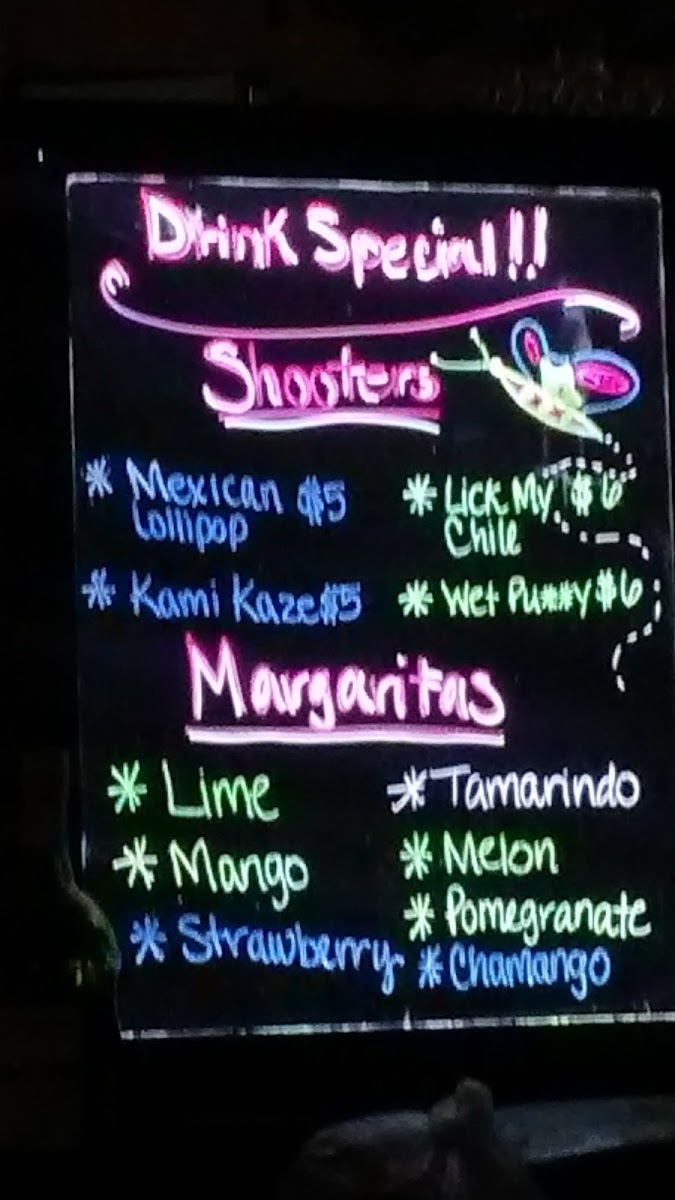 Drink Special!!
Shooters
* Mexican $5
Lollipop
* Lick My $6
Chile
* Kami Kaze $5
* Wet Pu**y $6
Margaritas
* Lime
* Tamarindo
* Mango
* Melon
* Pomegranate
* Strawberry
* Chamango